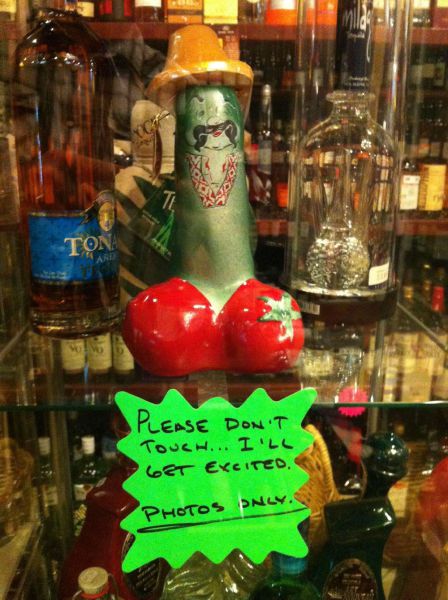 TONA
AÑEJO
PLEASE DON'T
TOUCH... I'LL
GET EXCITED.
PHOTOS ONLY.